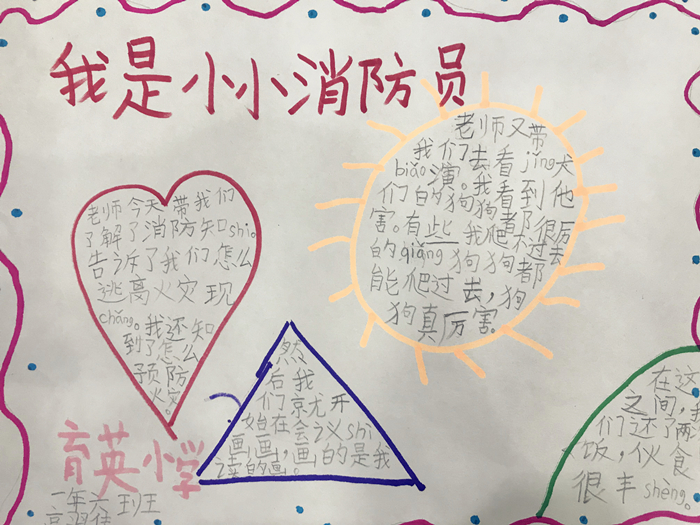 我是小小消防员
老师今天带我们
了解了消防知shi。
告诉了我们怎么
逃离火灾现
chǎng。我还知
到了怎么
预防
火灾。
老师又带
我们去看jǐng犬
biǎo演。我看到他
们的狗狗都很厉
害。有些我爬不过去
的qiáng狗狗都
能爬过去,狗
狗真厉害。
然
后我
们就尤开
始在会议shi
画画,画的是我
读的画。
在这
之间,我
们还了两
饭,伙食
很丰shèng。
育英小学
二年六班王